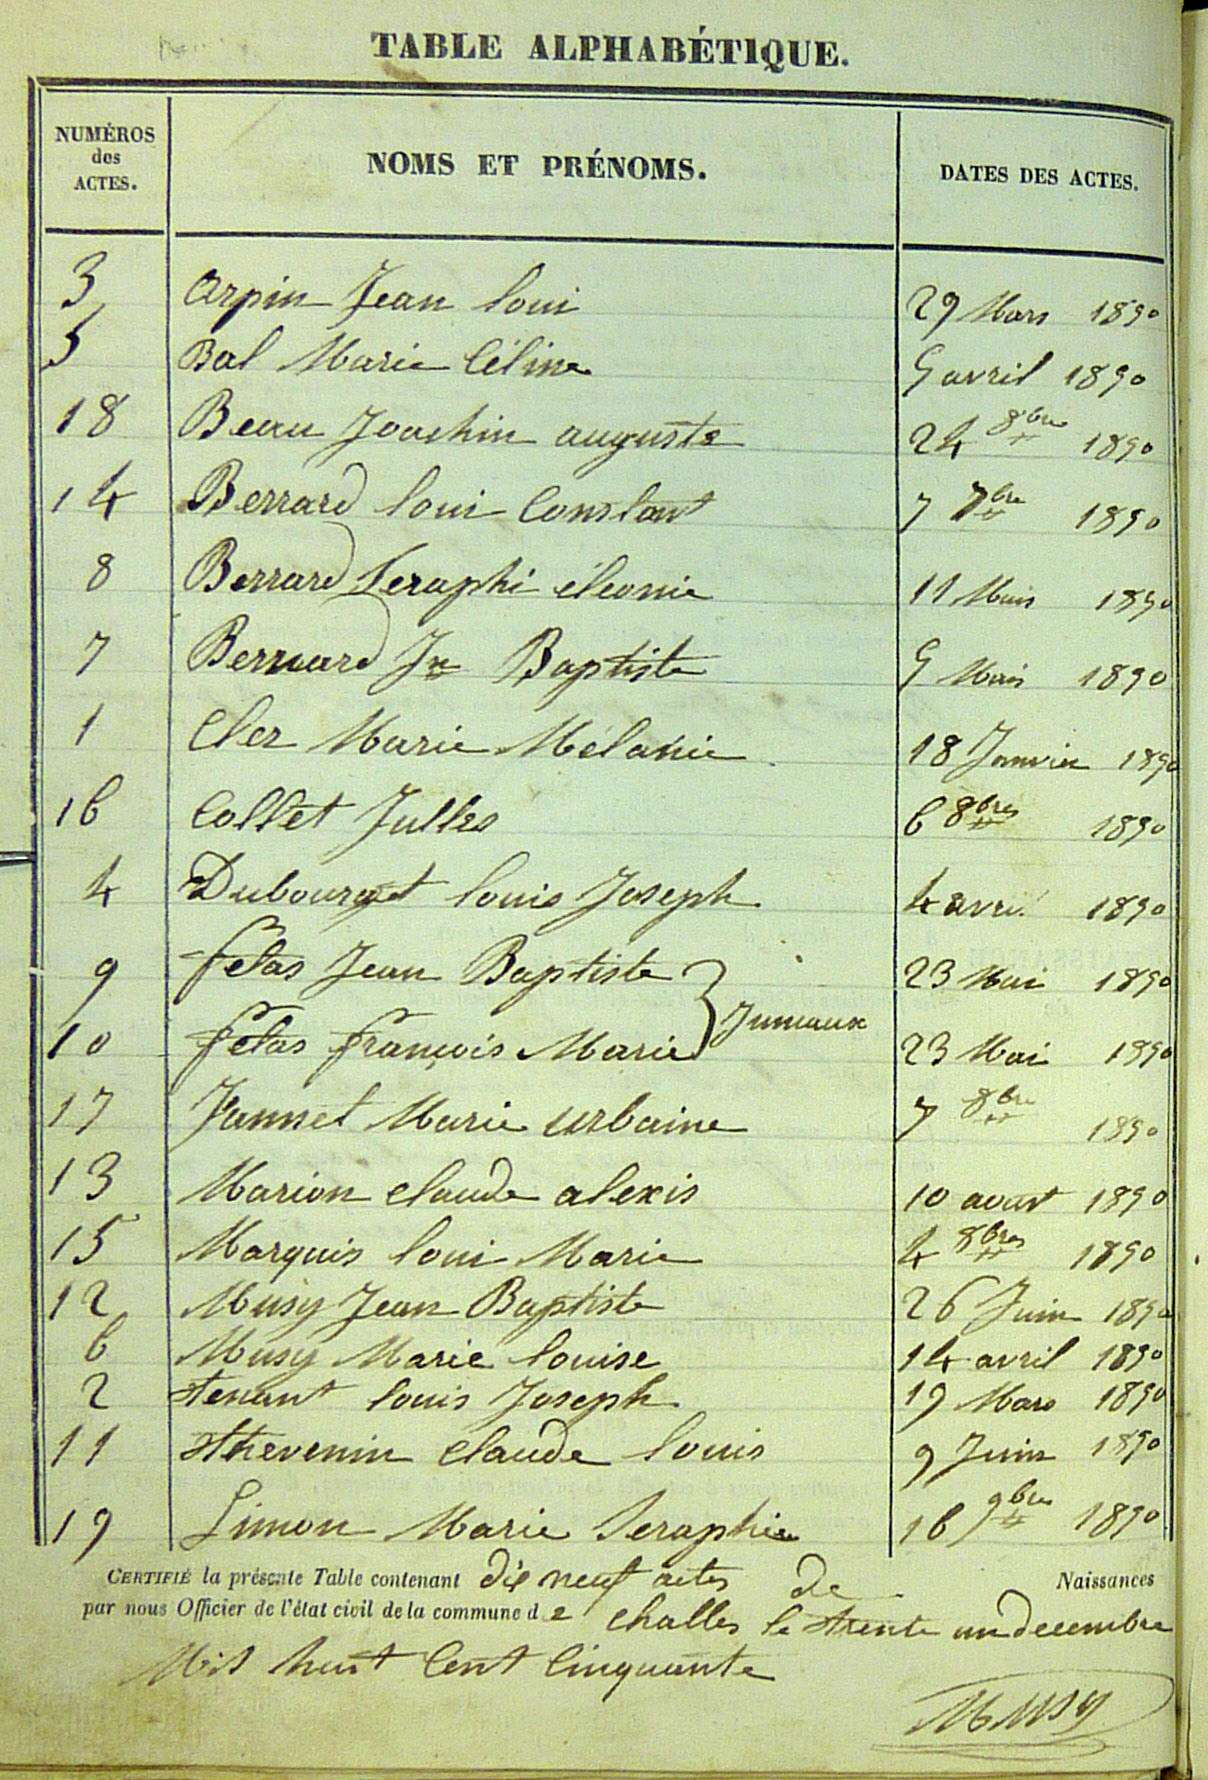 TABLE ALPHABÉTIQUE.
NUMÉROS des ACTES. NOMS ET PRÉNOMS. DATES DES ACTES.
3 arpin Jean loui 29 Mars 1850
5 Bal Marie Céline 5 avril 1850
18 Beau Joachin auguste 24 8bre 1850
14 Berrard loui Constant 7 7bre 1850
8 Berrard Seraphi éleonie 11 Mais 1850
7 Bernard Jn Baptiste 5 Mais 1850
1 Cler Marie Mélanie 18 Janvier 1850
16 Collet Julles 6 8bres 1850
4 Dubourget louis Joseph 4 avril 1850
9 felas Jean Baptiste 23 Mai 1850
Jumeaux
10 felas françois Marie 23 Mai 1850
17 Jannet Marie urbaine 7 8bre 1850
13 Marion claude alexis 10 avout 1850
15 Marquis loui Marie 4 8bres 1850
12 Musy Jean Baptiste 26 Juin 1850
6 Musy Marie louise 14 avril 1850
2 tenant louis Joseph 19 Mars 1850
11 thevenin claude louis 9 Juin 1850
19 Simon Marie Seraphie 16 9bre 1850
CERTIFIÉ la présente Table contenant dix neuf actes de Naissances
par nous Officier de l'état civil de la commune de challes le trente un decembre
Mil huit Cent Cinquante
Musy